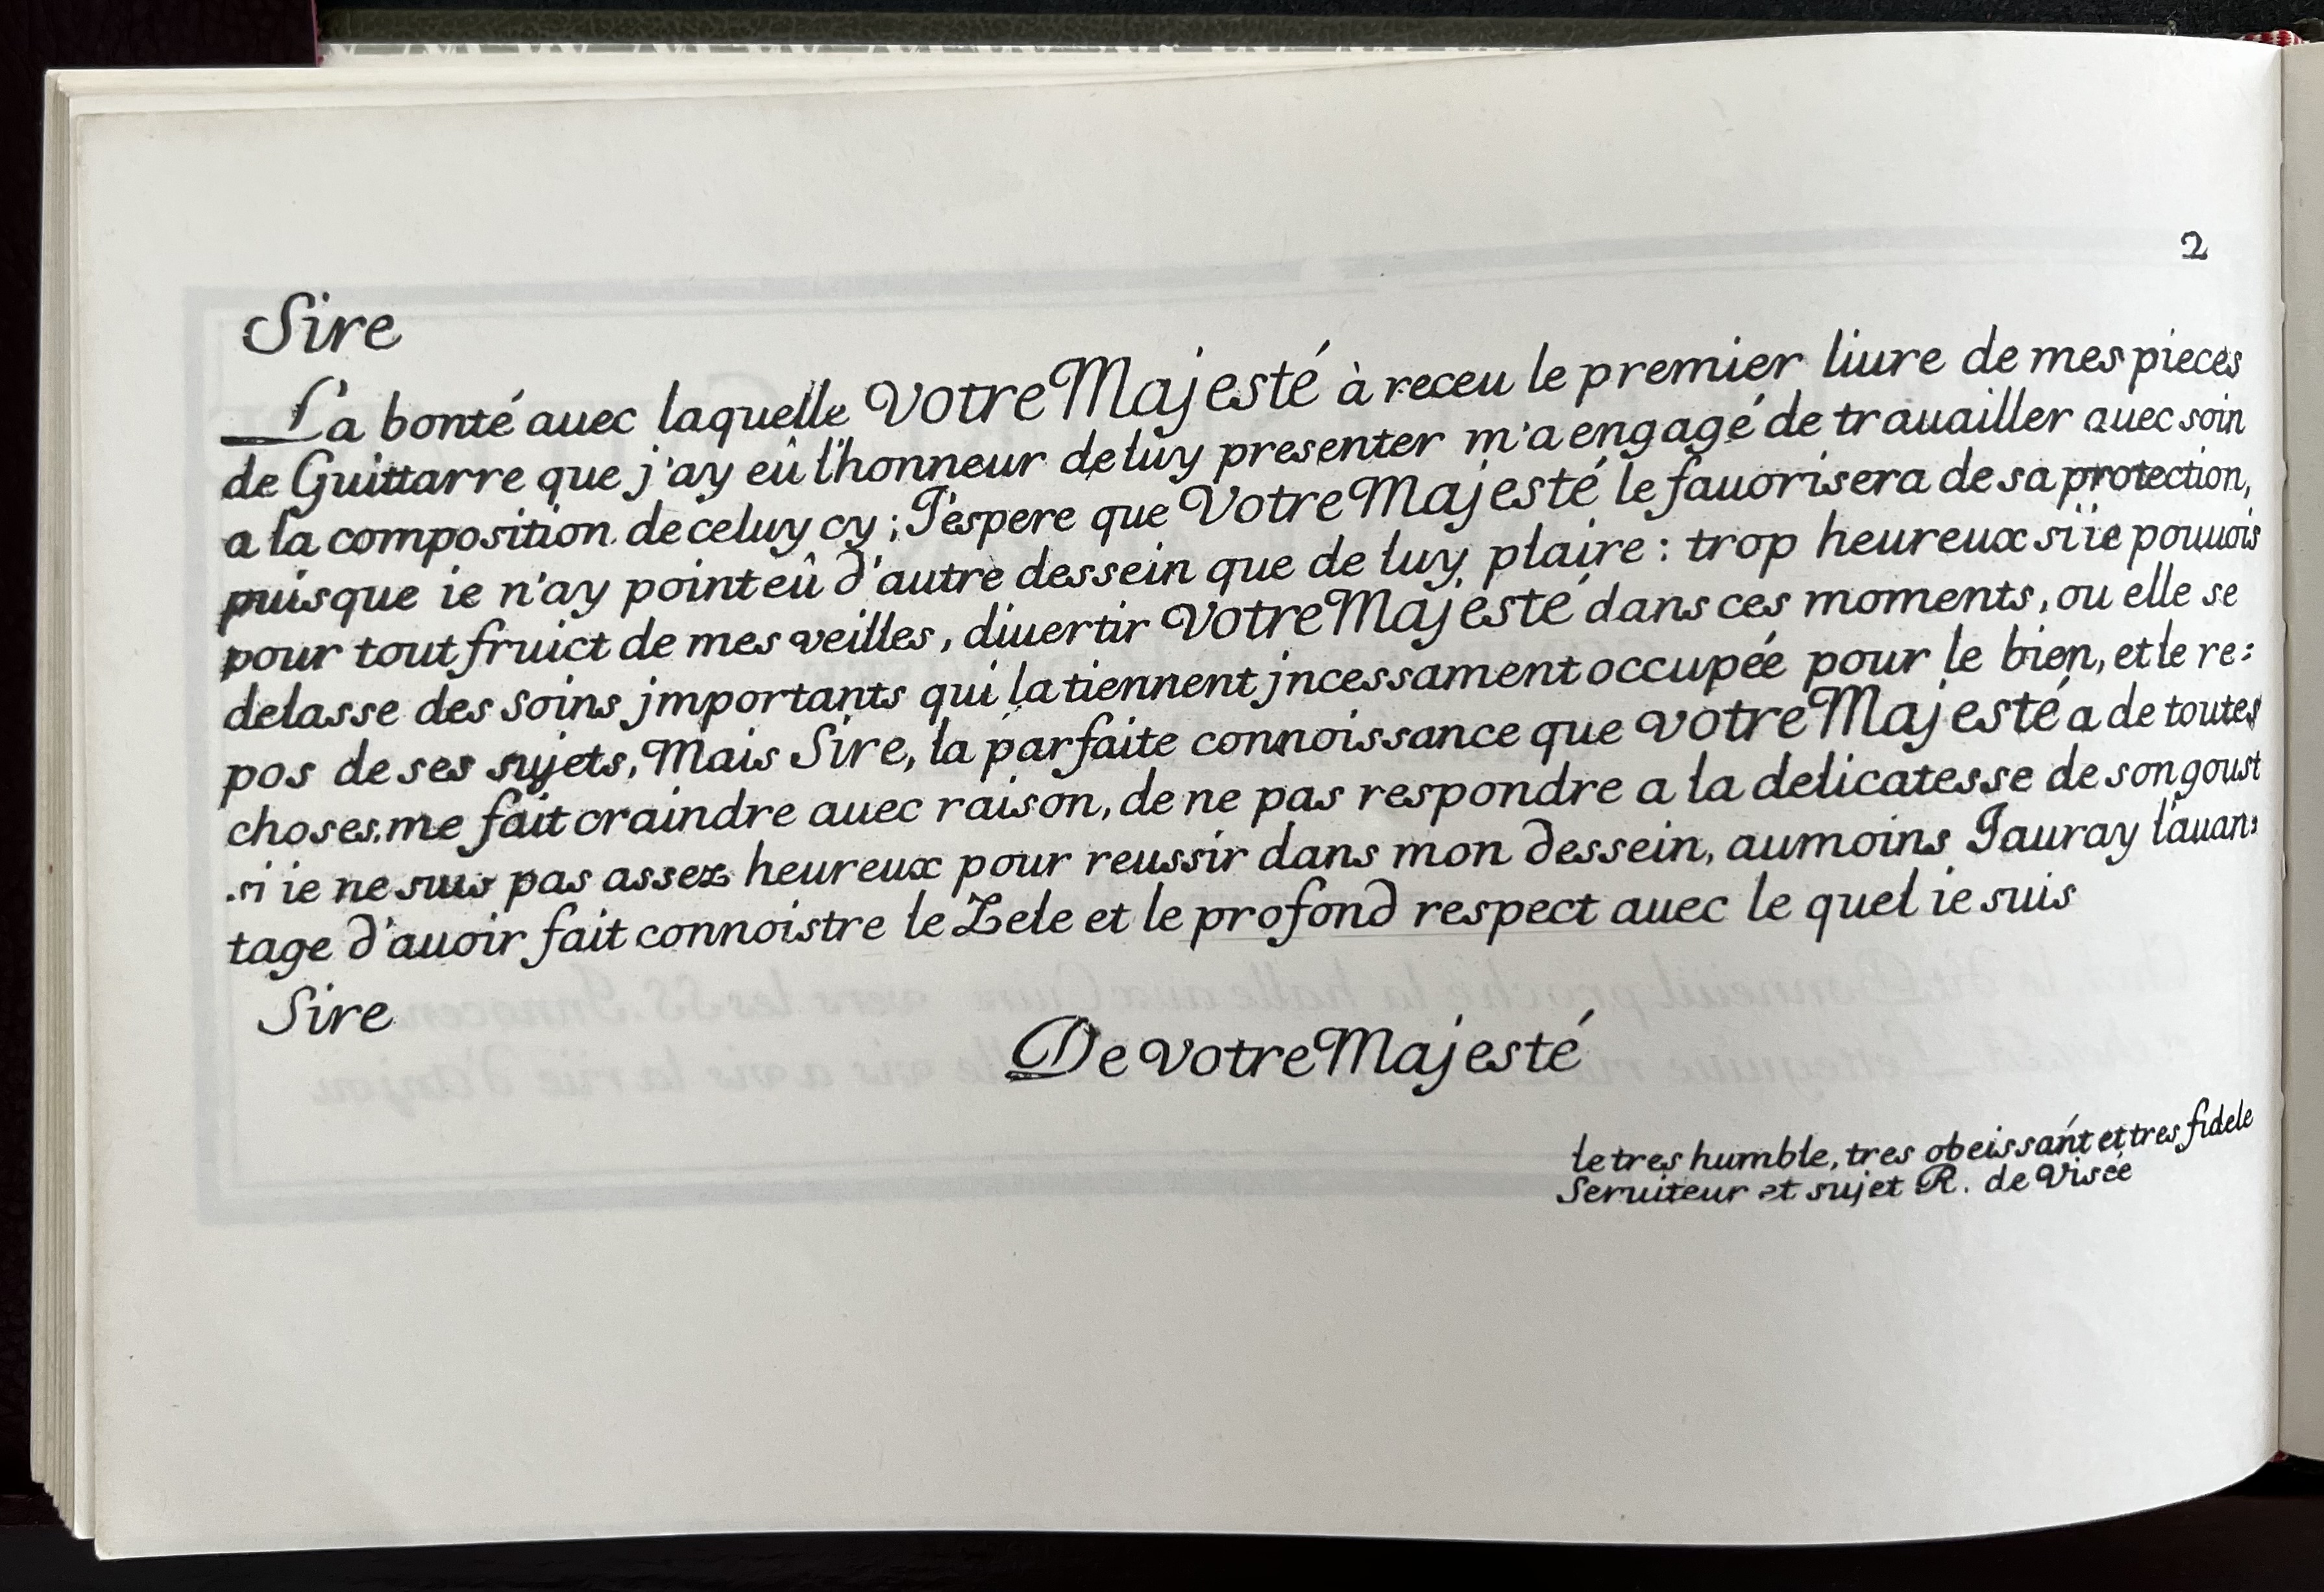 2
Sire
La bonté auec laquelle Votre Majesté à receu le premier liure de mes pieces
de Guittarre que j'ay eû l'honneur de luy presenter m'a engagé de trauailler auec soin
a la composition de celuy cy; J'espere que Votre Majesté le fauorisera de sa protection,
puisque ie n'ay point eû d'autre dessein que de luy plaire : trop heureux si ie pouuois
pour tout fruict de mes veilles, diuertir Votre Majesté dans ces moments, ou elle se
delasse des soins jmportants qui la tiennent jncessament occupée pour le bien, et le re:
pos de ses sujets, Mais Sire, la parfaite connoissance que votre Majesté a de toutes
choses, me fait craindre auec raison, de ne pas respondre a la delicatesse de son goust
si ie ne suis pas assez heureux pour reussir dans mon dessein, aumoins Jauray l'auan:
tage d'auoir fait connoistre le Zele et le profond respect auec le quel ie suis
Sire
De votre Majesté
le tres humble, tres obeissant et tres fidele
Seruiteur et sujet R. de Visée